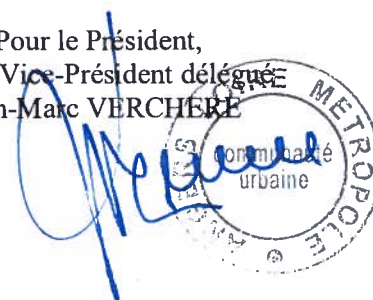 Pour le Président,
Vice-Président délégué,
n-Marc VERCHERE
ANGERS LOIRE METROPOLE
communauté
urbaine